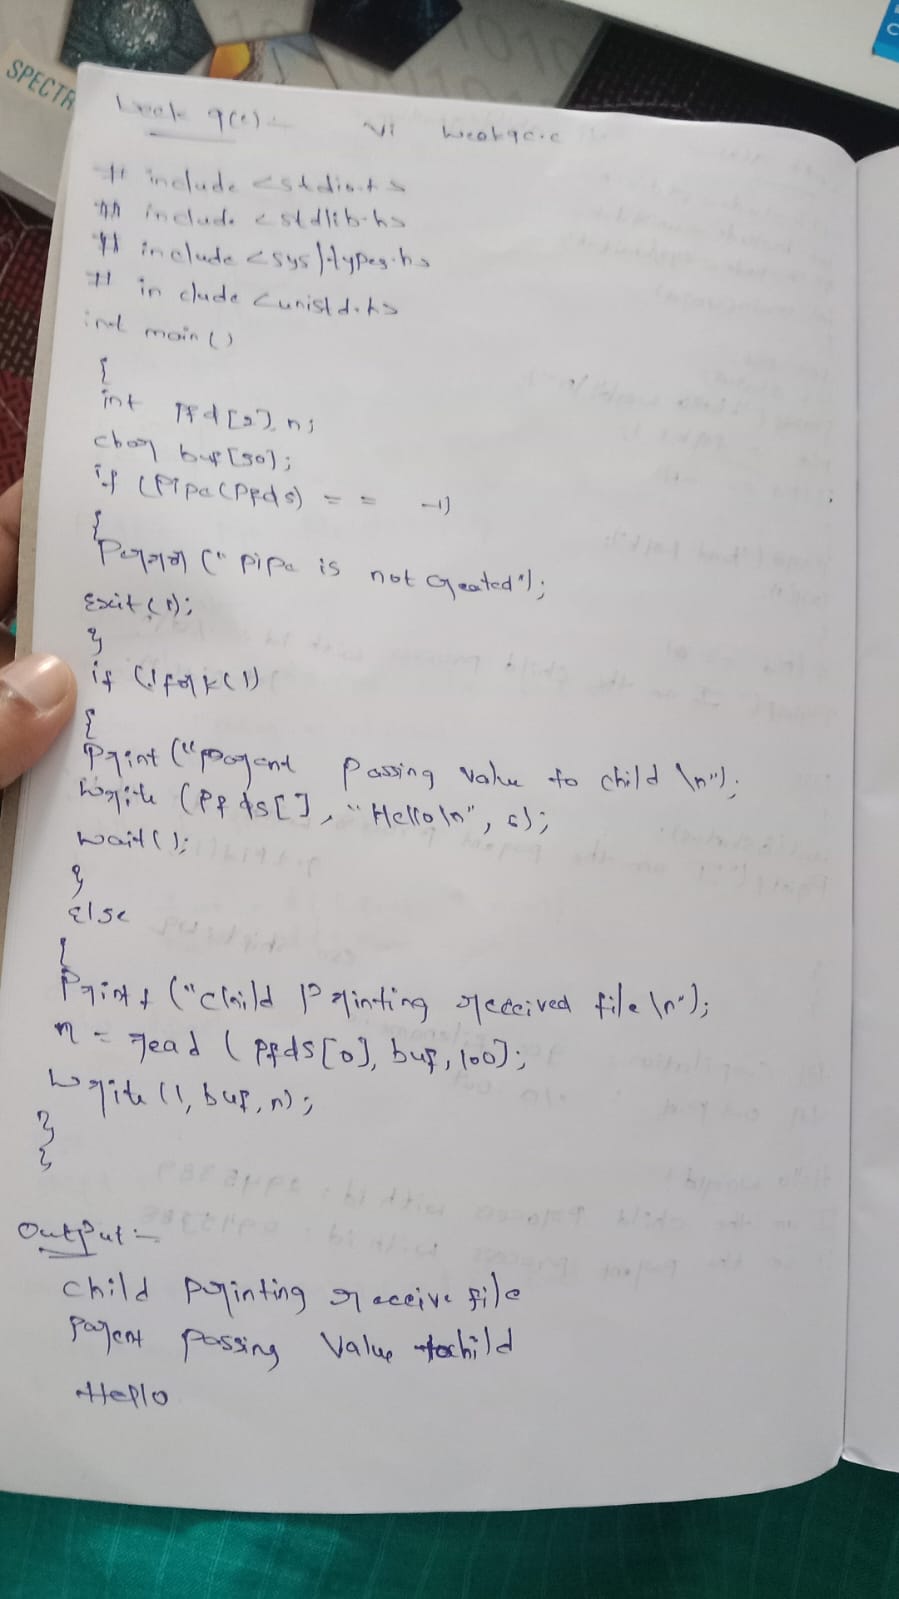 SPECTR
Week 9(c) :- vi week9c.c
# include <stdio.h>
# include <stdlib.h>
# include <sys/types.h>
# include <unistd.h>
int main()
{
int pfd[2], n;
char buf[50];
if (Pipe(Pfds) = = -1)
{
Perror (" pipe is not created");
Exit(1);
}
if (!fork())
{
Print ("parent Passing value to child \n");
Write (Pfds[ ], "Hello\n", 6);
wait();
}
Else
{
Printf ("child Printing received file \n");
n = read ( pfds[0], buf, 100);
Write (1, buf, n);
}
}
Output :-
Child printing receive file
Parent passing value tochild
Hello